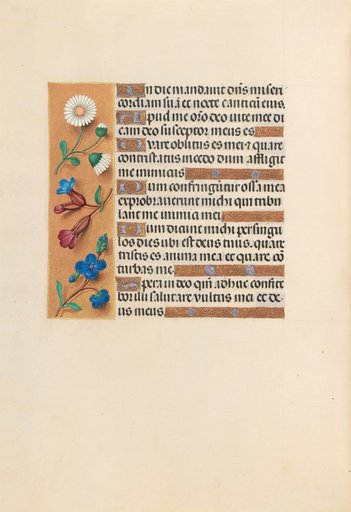 In die mandavit dn̄s miseri
cordiam suā et nocte canticū eius.
Apud me orō deo vite mee di
cam deo susceptor meus es
Quare oblitus es mei ⁊ quare
contristatus incedo dum affligit
me inimicus
Dum confringūtur ossa mea
exprobraverunt michi qui tribu
lant me inimici mei
Dum dicunt michi per singu
los dies ubi est deus tuus. quare
tristis es anima mea et quare cō
turbas me
Spera in deo qm̄ adhuc confite
bor illi salutare vultus mei et de
us meus